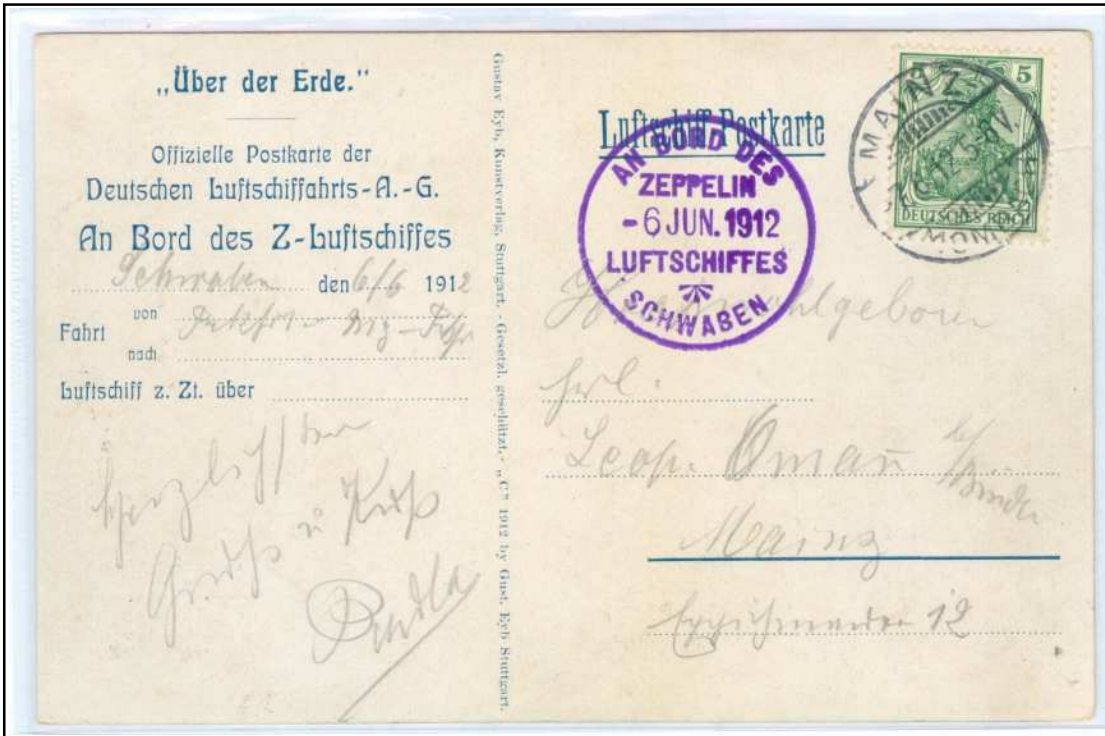 „Über der Erde.“
Offizielle Postkarte der
Deutschen Luftschiffahrts-A.-G.
An Bord des Z-Luftschiffes
Schwaben den 6/6 1912
Fahrt von
nach
Luftschiff z. Zt. über
Herzlichsten
Gruß u Kuß
Gustav Eyb, Kunstverlag, Stuttgart. - Gesetzl. geschützt. - „C“ 1912 by Gust. Eyb Stuttgart.
Luftschiff-Postkarte
AN BORD DES
ZEPPELIN
-6 JUN. 1912
LUFTSCHIFFES
SCHWABEN
5
DEUTSCHES REICH
MAINZ
Frl.
Leop.
Mainz
12